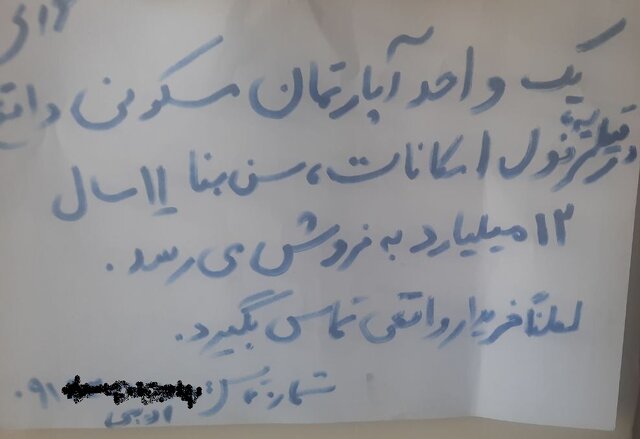 یک واحد آپارتمان مسکونی واقع
در قیطریه فول امکانات، سن بنا ۱۱ سال
۱۲ میلیارد به فروش می رسد.
لطفاً خریدار واقعی تماس بگیرد.
شماره تماس: ۰۹۱
ادیبی